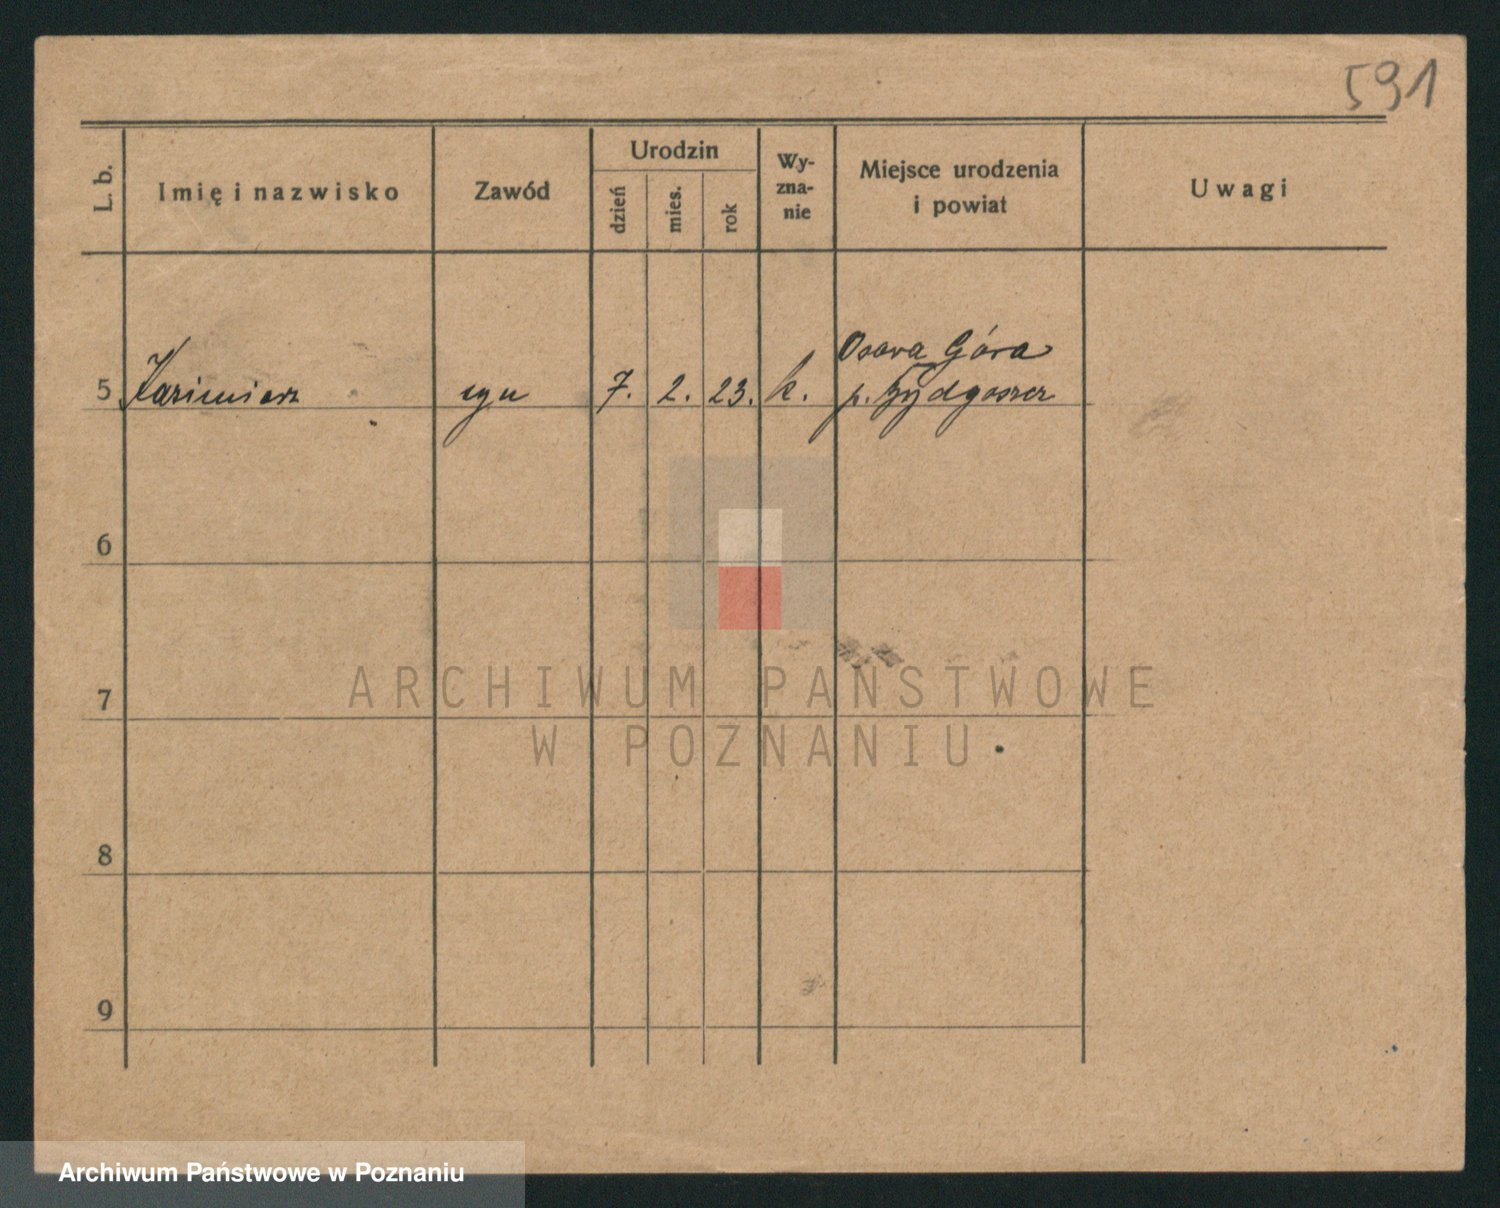 591
L. b.
Imię i nazwisko
Zawód
Urodzin
dzień
mies.
rok
Wy-
zna-
nie
Miejsce urodzenia
i powiat
Uwagi
Osowa Góra
5 Kazimierz syn 7. 2. 23. k. p. Bydgoszcz
6
7
8
9
ARCHIWUM PAŃSTWOWE
W POZNANIU
Archiwum Państwowe w Poznaniu